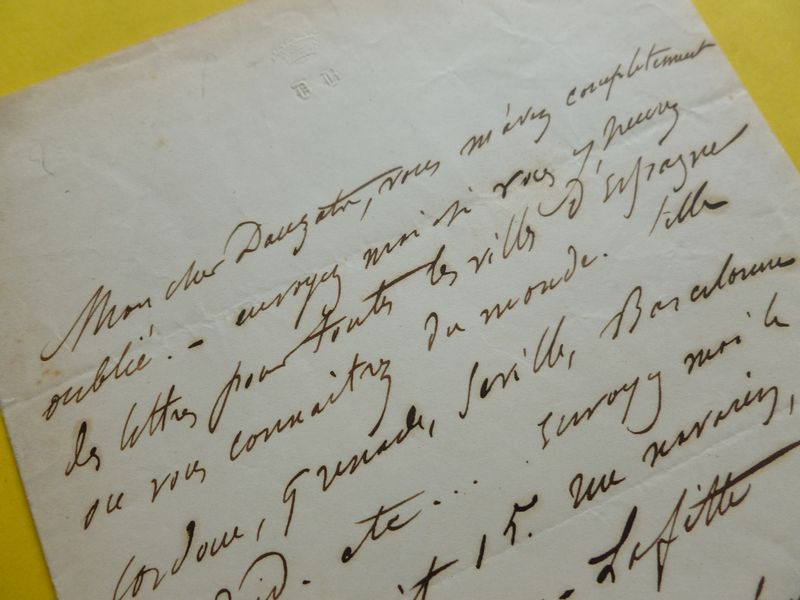 Mon cher Dauzats, vous m'avez complètement
oublié. - envoyez moi si vous y pensez
des lettres pour toutes les villes d'Espagne
ou vous connaitrez du monde. telle
Cordoue, Grenade, Séville, Barcelonne
etc... envoyez moi le
15. rue navarin,
Lafitte